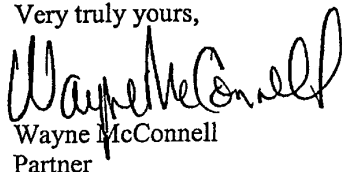 Very truly yours,
Wayne McConnell
Wayne McConnell
Partner